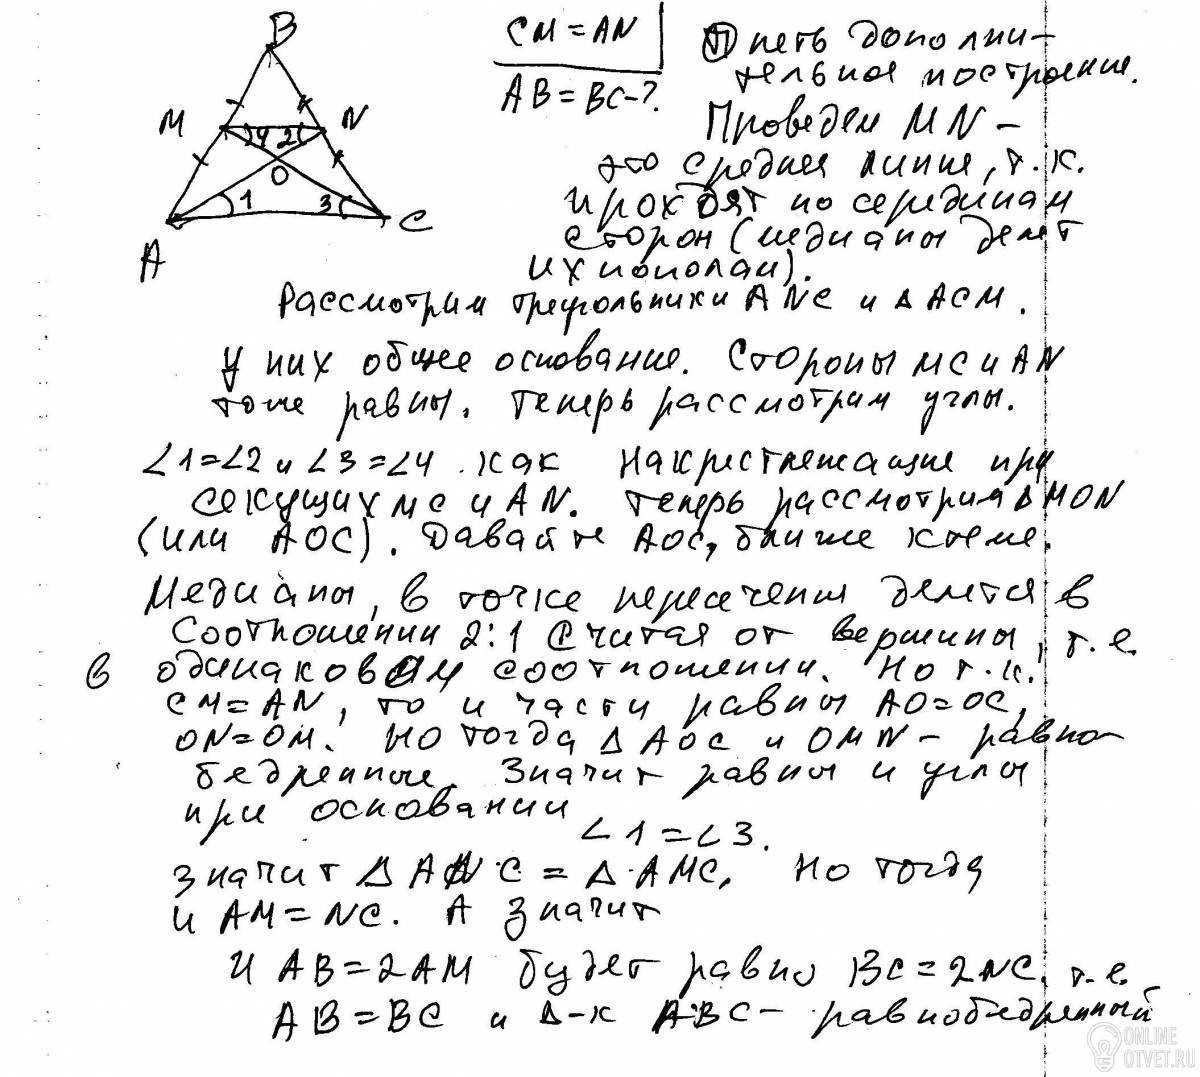 B
M
N
4 2
O
1
3
A
C
CM = AN
AB = BC - ?
петь дополни-
тельное построение.
Проведем MN -
это средняя линия, т.к.
проходят по серединам
сторон (медианы делят
их пополам).
Рассмотрим треугольники ANC и ΔACM.
У них общее основание. Стороны MC и AN
тоже равны. Теперь рассмотрим углы.
∠1=∠2 и ∠3=∠4 как накрестлежащие при
секущих MC и AN. Теперь рассмотрим ΔMON
(или AOC). Давайте AOC, ближе к теме.
Медианы, в точке пересечения делятся в
соотношении 2:1 считая от вершины, т.е.
в одинаковом соотношении. Но т.к.
CM=AN, то и части равны AO=OC,
ON=OM. Но тогда ΔAOC и OMN - равно-
бедренные. Значит равны и углы
при основании
∠1=∠3.
Значит ΔANC = ΔAMC. Но тогда
и AM=NC. А значит
и AB=2AM будет равно BC=2NC. т.е.
AB=BC и Δ-к ABC - равнобедренный
ONLINE
OTVET.RU